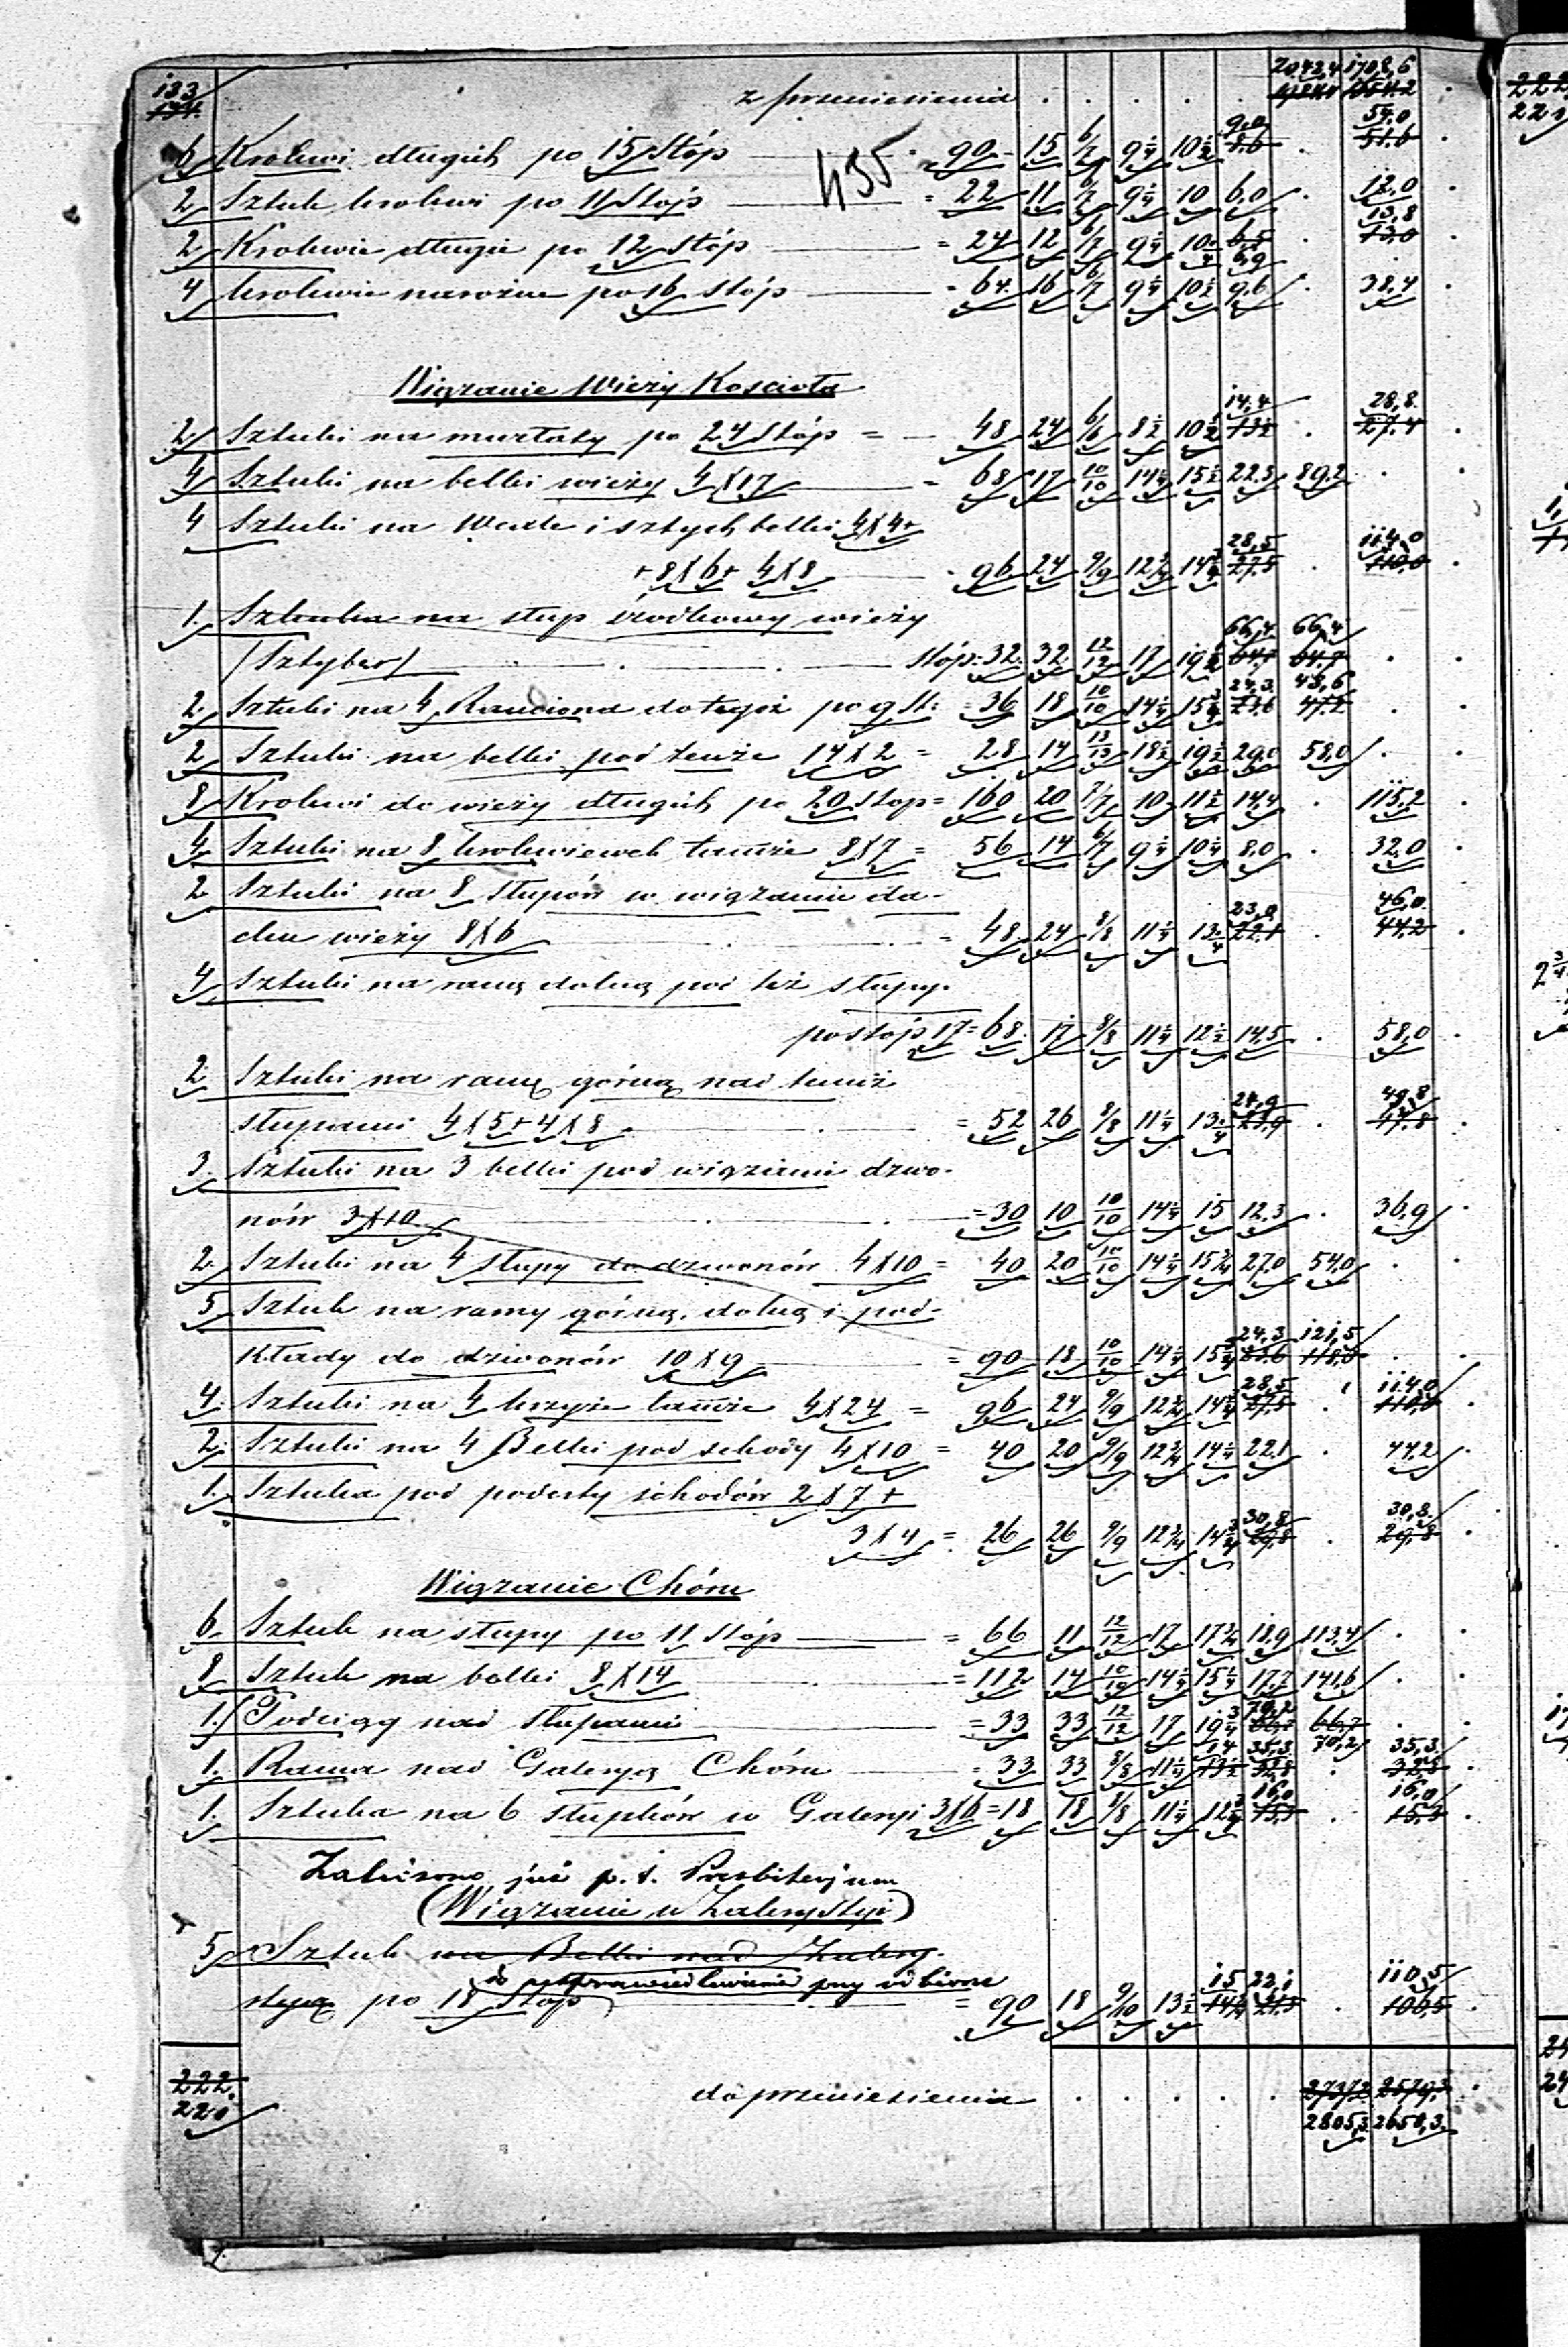 183 z przeniesienia . . . . . 2042,4 1708,6 .
174. 1984,0 1654.2
435
6 Krokwi długich po 15 Stóp — = 90 15 6/7 9 1/4 10 1/2 9,0 8.6 . 54,0 51.6 .
2 Sztuk krokwi po 11 Stóp — = 22 11 6/7 9 1/4 10 6,0 . 12.0 .
2 Krokwie długie po 12 Stóp — = 24 12 6/7 9 1/4 10 1/4 6,5 6,9 . 13,8 13,0 .
4 krokwie narożne po 16 stóp — = 64. 16 6/7 9 1/4 10 1/2 9.6 . 38,4 .
Wiązanie Wieży Kościoła
2. Sztuki na murłaty po 24 Stóp = — 48 24 6/6 8 1/2 10 1/2 14,4 . 28,8. 27.4 .
4 Sztuki na belki wieży 4 X 17 — = 68 17 10/10 14 1/4 15 1/2 22.3 89.2 . .
4 Sztuki na Wexle i sztych belki 4 X 4+
+ 8 X 6 + 4 X 8 — = 96 24 9/9 12 3/4 14 3/4 28,5 27.5 . 114,0 110,0 .
1. Sztuka na słup środkowy wieży
/Sztyber/ — . — . — stóp = 32. 32 12/12 17 19 1/2 66,4 64.7 66,4 64.7 . .
2. Sztuki na 4 Ramiona do tegoż po 9 St: = 36 18 10/10 14 1/4 15 3/4 24,3 23.6 48,6 47.2 . .
2 Sztuki na belki pod tenże 14 X 2 = 28 14 13/13 18 1/2 19 1/2 29.0 58,0 . .
8 Krokwi do wieży długich po 20 Stop = 160 20 7/7 10 11 1/2 14,4 . 115,2 .
4. Sztuki na 8 krokwiewek tamże 8 X 7 = 56 14 6/7 9 1/4 10 1/4 8,0 . 32,0 .
2 Sztuki na 8 słupów w wiązaniu da-
chu wieży 8 X 6 — = 48 24 8/8 11 1/4 13 1/4 23,0 22.1 . 46,0. 44,2 .
4 Sztuki na ramę dolną pod też słupy.
po stóp 17 = 68. 17 8/8 11 1/4 12 1/2 14.5 . 58,0 .
2 Sztuki na ramę górną nad temiż
słupami 4 X 5 + 4 X 8 . — = 52 26 8/8 11 1/4 13 1/4 24,9 23.9 . 49,8 47.8 .
3. Sztuki na 3 belki pod wiązanie dzwo-
nów 3 X 10 — = 30 10 10/10 14 1/4 15 12.3 . 36,9 .
2. Sztuki na 4 słupy do dzwonów 4 X 10 = 40 20 10/10 14 1/4 15 3/4 27.0 54,0 . .
5 Sztuk na ramy górną, dolną i pod-
kłady do dzwonów 10 X 9 — = 90 18 10/10 14 1/4 15 3/4 24,3 23.6 121,5 118,0 . .
4. Sztuki na 4 krzyże tamże 4 X 24 = 96 24 9/9 12 3/4 14 3/4 28,5 27.5 . 114,0 110,0 .
2. Sztuki na 4 Belki pod schody 4 X 10 = 40 20 9/9 12 3/4 14 1/4 22.1 . 44.2 .
1. Sztuka pod podesty schodów 2 X 7 +
3 X 4 = 26 26 9/9 12 3/4 14 3/4 30,8 29,8 . 30,8. 29,8 .
Wiązanie Chóru
6. Sztuk na słupy po 11 Stóp — = 66 11 12/12 17 17 3/4 18.9 113.4 . .
8. Sztuk na belki 8 X 14 — = 112 14 10/10 14 1/4 15 1/4 17.7 141.6 . .
1. Podciąg nad słupami — = 33 33 12/12 17 19 3/4 70,2 66,7 66,7 70,2 . .
1. Rama nad Galeryą Chóru — = 33 33 8/8 11 1/4 14 13 1/2 35,3 32,8 . 35,3 32,8 .
1. Sztuka na 6 słupków w Galeryi 3 X 6 = 18 18 8/8 11 1/4 12 3/4 16,0 15,3 . 16,0 15,3 .
Zaliczono już p. t. Presbiterjum
(Wiązanie w Zakrystyi)
5 Sztuk na Belki nad Zakry-
do usprawiedliwienia przy odbiorze
styą po 18 Stóp — = 90 18 9/10 13 1/2 15 14 3/4 22,1 21.3 . 110,5 106,5 .
222. do przeniesienia . . . . . 2737,2 2579,3 .
221 2805,3 2658,3.